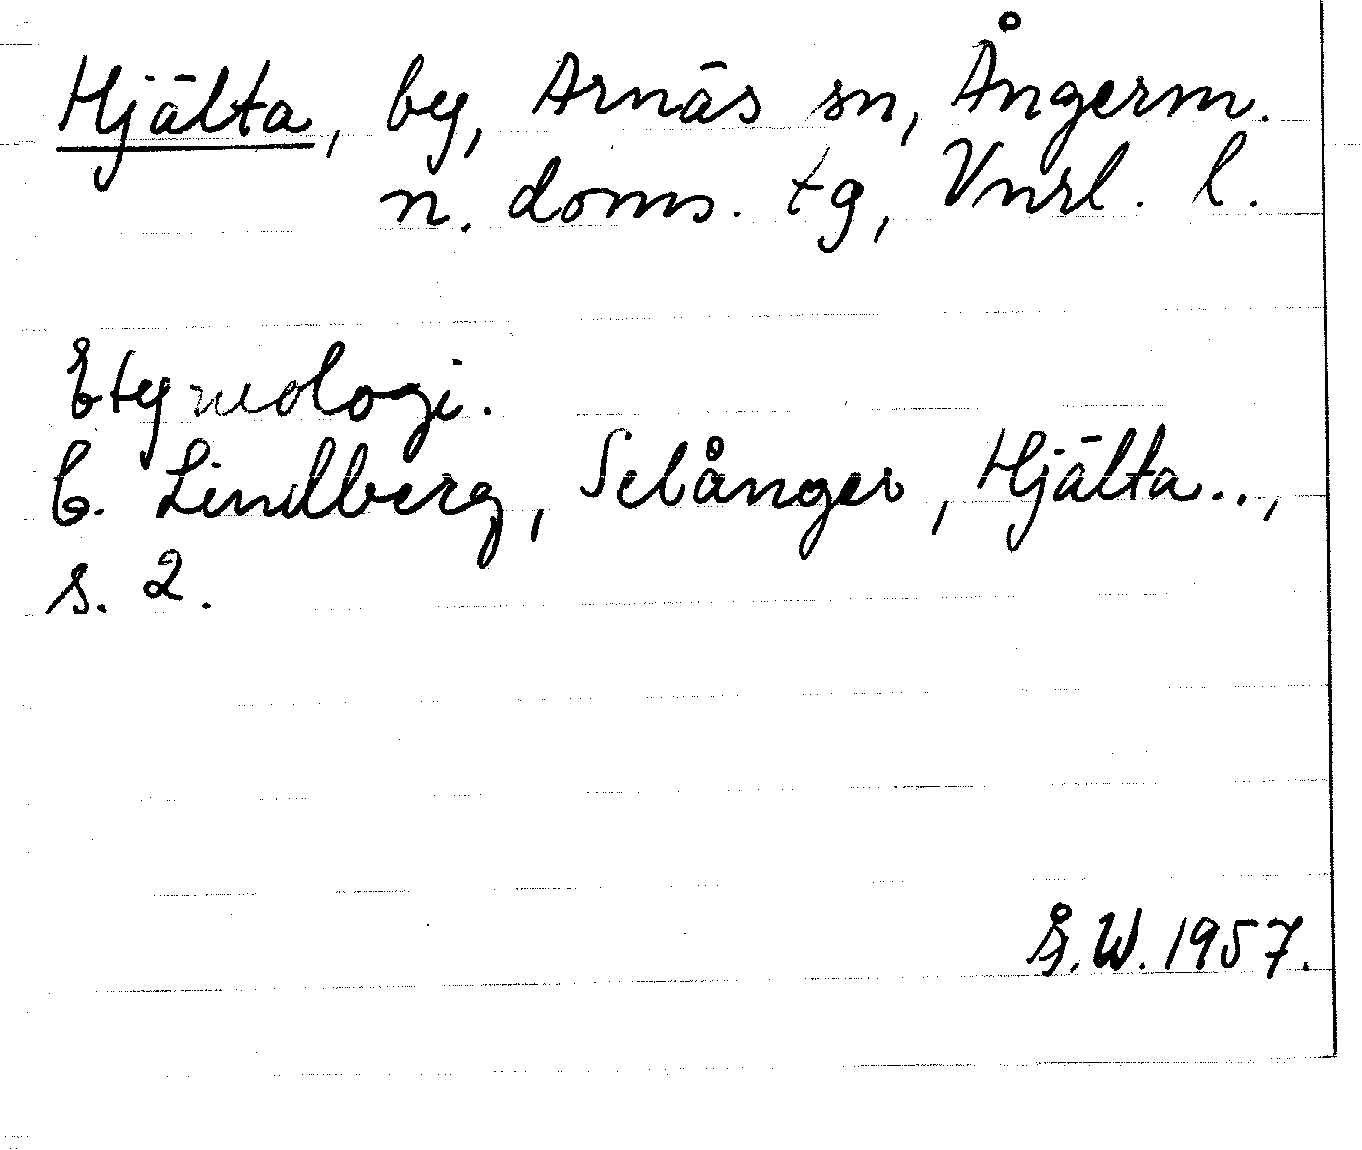 Hjälta, by, Arnäs sn, Ångerm.
n. doms. tg, Vnrl. l.
Etymologi.
C. Lindberg, Selånger, Hjälta..,
s. 2.
G.W. 1957.